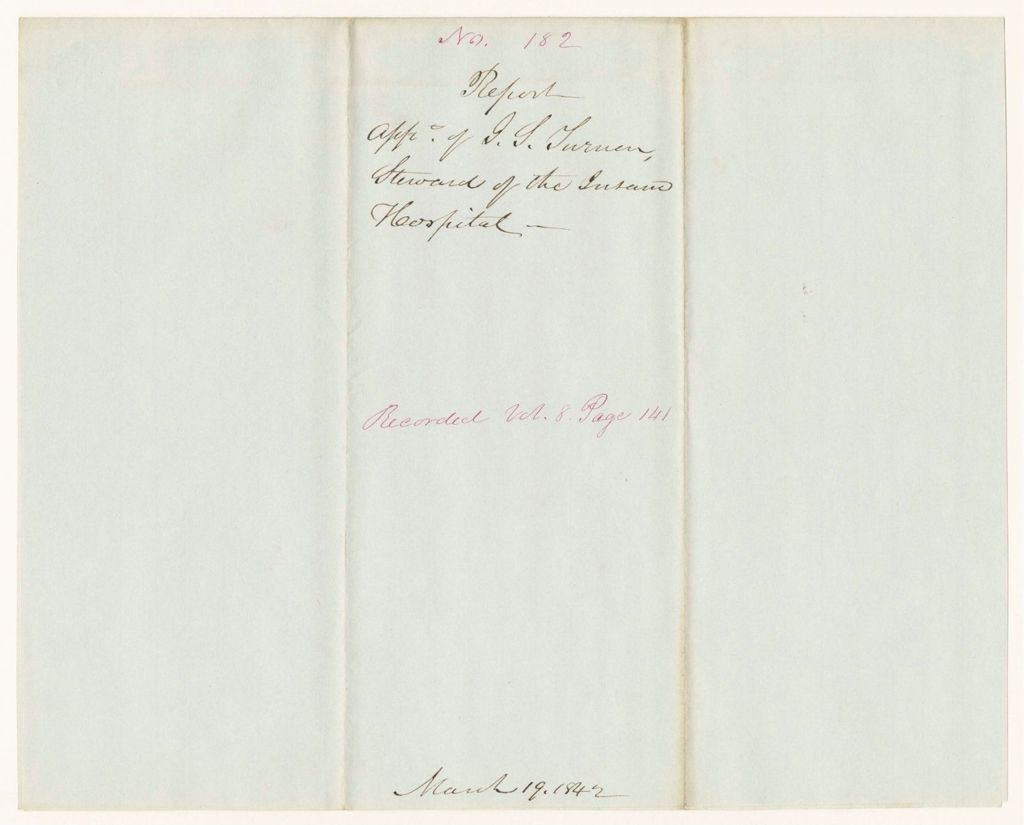 No. 182
Report
Appt. of J. S. Turner,
Steward of the Insane
Hospital —
Recorded Vol. 8. Page 141
March 19. 1842